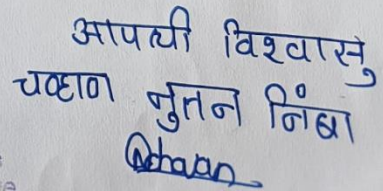 आपली विश्वासु
चव्हाण नुतन निंबा